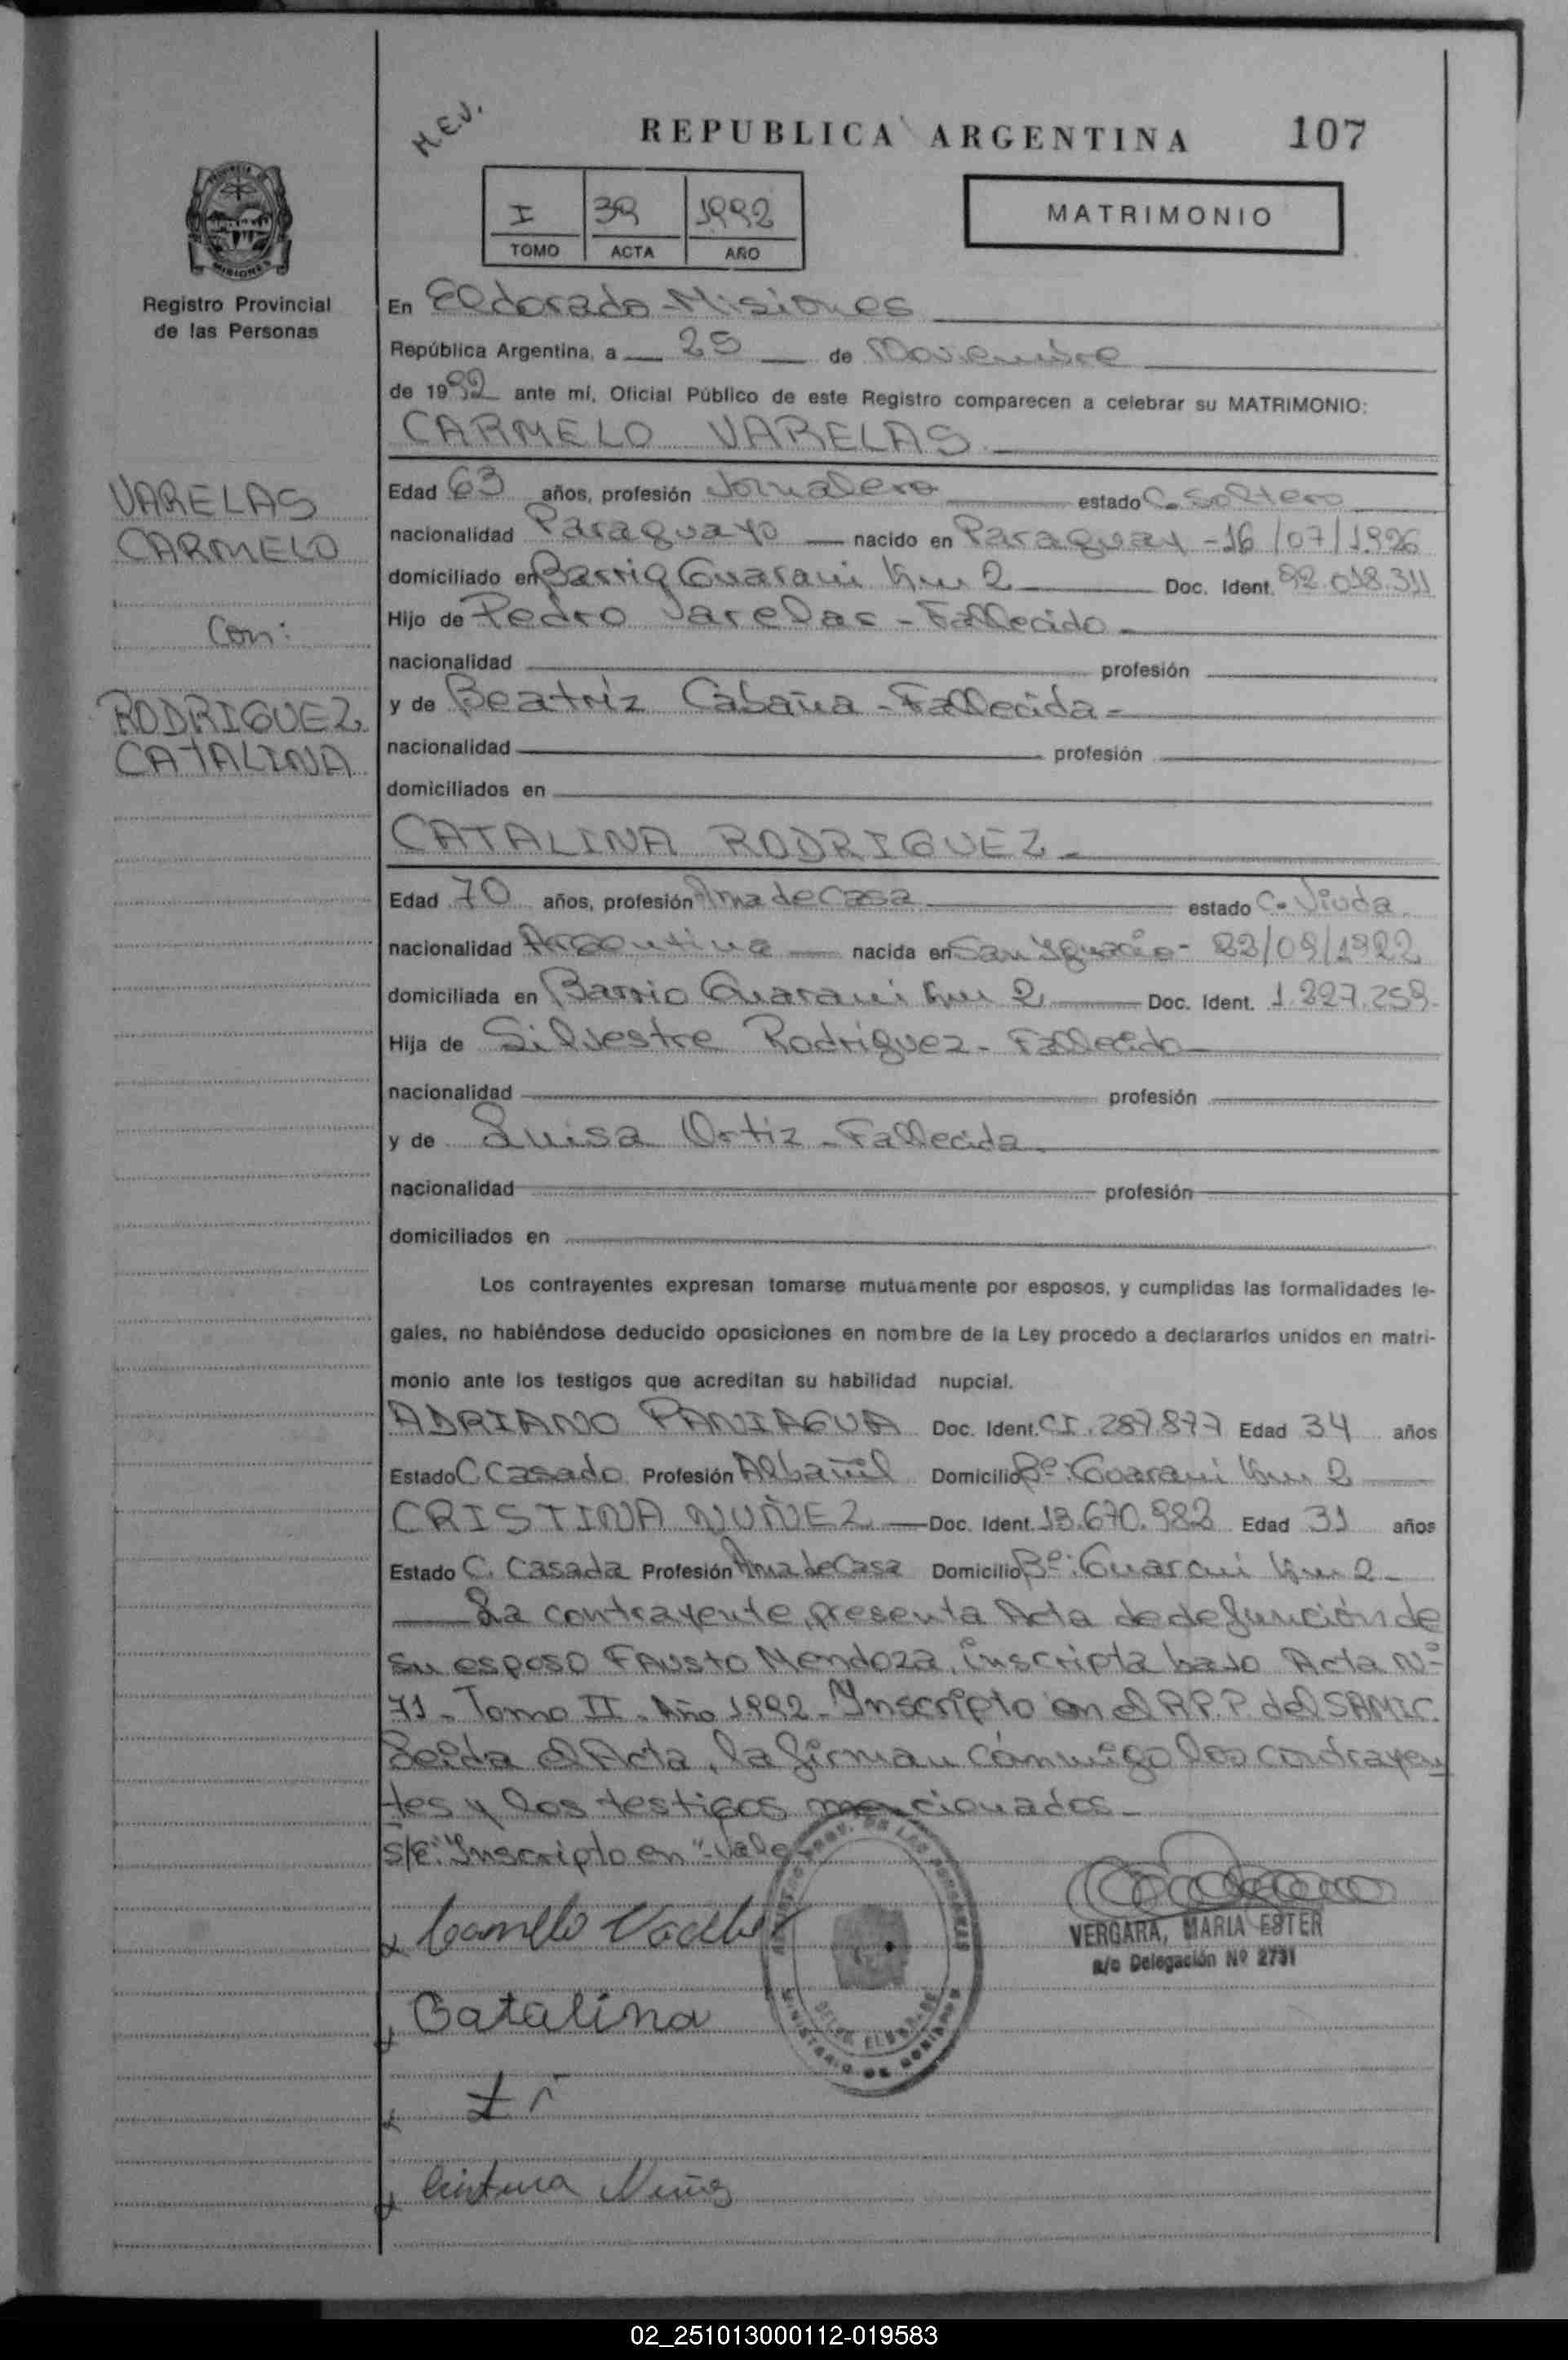 M.E.V.
REPUBLICA ARGENTINA 107
I 39 1992
TOMO ACTA AÑO
MATRIMONIO
PROVINCIA DE
MISIONES
Registro Provincial
de las Personas
En Eldorado-Misiones
República Argentina, a 25 de Noviembre
de 1992 ante mí, Oficial Público de este Registro comparecen a celebrar su MATRIMONIO:
CARMELO VARELAS
VARELAS
CARMELO
Con:
RODRIGUEZ
CATALINA
Edad 63 años, profesión Jornalero estado C. Soltero
nacionalidad Paraguayo nacido en Paraguay - 16/07/1926
domiciliado en Barrio Guarani Km 2 Doc. Ident. 92.018.311
Hijo de Pedro Varelas - Fallecido -
nacionalidad profesión
y de Beatriz Cabaña - Fallecida -
nacionalidad profesión
domiciliados en
CATALINA RODRIGUEZ -
Edad 70 años, profesión Ama de Casa estado C. Viuda
nacionalidad Argentina nacida en San Ignacio - /09/1922
domiciliada en Barrio Guarani Km 2 Doc. Ident. 1.227.259
Hija de Silvestre Rodriguez - Fallecido
nacionalidad profesión
y de Luisa Ortiz - Fallecida
nacionalidad profesión
domiciliados en
Los contrayentes expresan tomarse mutuamente por esposos, y cumplidas las formalidades le-
gales, no habiéndose deducido oposiciones en nombre de la Ley procedo a declararlos unidos en matri-
monio ante los testigos que acreditan su habilidad nupcial.
ADRIANO PANIAGUA Doc. Ident. CI. 287.877 Edad 34 años
Estado C Casado Profesión Albañil Domicilio Bº: Guarani Km 2
CRISTINA NUÑEZ Doc. Ident. 13.670.982 Edad 31 años
Estado C. Casada Profesión Ama de Casa Domicilio Bº: Guarani Km 2 -
La contrayente, presenta Acta de defunción de
su esposo Fausto Mendoza, inscripta bajo Acta Nº
71 - Tomo II - Año 1.992 - Inscripto en el R.P.P. del SAMIC.
Leida el Acta, la firman conmigo los contrayen
tes y los testigos mencionados -
S/E: "Inscripto en" - Vale
Carmelo
Catalina
Cristina Nuñez
VERGARA, MARIA ESTER
a/c Delegación Nº 2731
PROV. DE LAS PERSONAS
DELEG. ELDORADO
MINISTERIO DE GOBIERNO
02_251013000112-019583